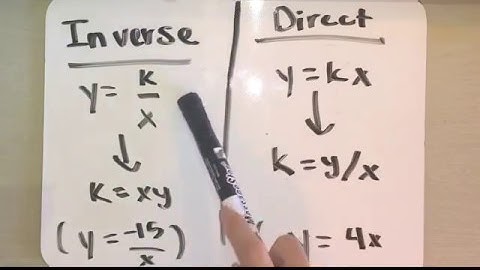 Inverse
y = k/x
k = xy
(y = -15/x)
Direct
y = kx
k = y/x
( y = 4x